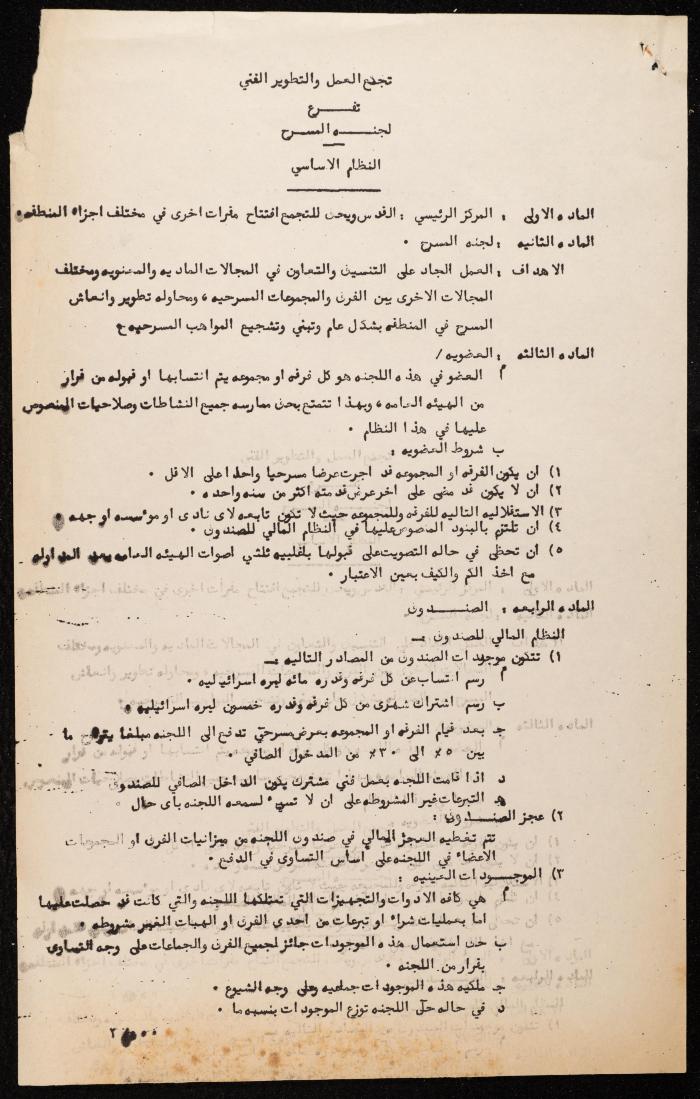 تجمع العمل والتطوير الفني
تفـــرع
لجنـــه المسـرح
النظام الاساسي
الماده الاولى : المركز الرئيسي : القدس ويحق للتجمع افتتاح مقرات اخرى في مختلف اجزاء المنطقه
الماده الثانيه : لجنه المسرح .
الاهداف : العمل الجاد على التنسيق والتعاون في المجالات الماديه والمعنويه ومختلف
المجالات الاخرى بين الفرق والمجموعات المسرحيه ، ومحاوله تطوير وانعاش
المسرح في المنطقه بشكل عام وتبني وتشجيع المواهب المسرحيه
الماده الثالثه : العضويه /
أ العضو في هذه اللجنه هو كل فرقه او مجموعه يتم انتسابها او قبوله من قرار
من الهيئه العامه ، وبهذا تتمتع بحق ممارسه جميع النشاطات وصلاحيات المنصوص
عليها في هذا النظام .
ب شروط العضويه :
١) ان يكون الفرقه او المجموعه قد اجرت عرضا مسرحيا واحدا على الاقل .
٢) ان لا يكون قد مضى على اخر عرض قدمته اكثر من سنه واحده .
٣) الاستقلاليه التاليه للفرقه وللمجموعه حيث لا تكون تابعه لاى نادى او مؤسسه او جهه
٤) ان تلتزم بالبنود المصوص عليها في النظام المالي للصندوق .
٥) ان تحظى في حاله التصويت على قبولها بأغلبيه ثلثي اصوات الهيئه العامه بعد المداوله
مع اخذ الكم والكيف بعين الاعتبار .
الماده الرابعه : الصنـــدوق
النظام المالي للصندوق :ـ
١) تتكون موجودات الصندوق من المصادر التاليه :ـ
أ رسم انتساب عن كل فرقه وقدره مائه ليره اسرائيليه .
ب رسم اشتراك شهرى من كل فرقه وقدره خمسون ليره اسرائيليه .
جـ بعد قيام الفرقه او المجموعه بعرض مسرحي تدفع الى اللجنه مبلغا يتراوح ما
بين ٥٪ الى ٣٠٪ من المدخول الصافي .
د اذا قامت اللجنه بعمل فني مشترك يكون الداخل الصافي للصندوق
هـ التبرعات غير المشروطه على ان لا تسيء لسمعه اللجنه باى حال .
٢) عجز الصنـــدوق :
تتم تغطيه العجز المالي في صندوق اللجنه من ميزانيات الفرق او المجموعات
الاعضاء في اللجنه على اساس التساوى في الدفع .
٣) الموجـــودات العينيه :
أ هي كافه الادوات والتجهيزات التي تمتلكها اللجنه والتي كانت قد حصلت عليها
اما بعمليات شراء او تبرعات من احدى الفرق او الهبات الغير مشروطه .
ب حق استعمال هذه الموجودات جائز لجميع الفرق والجماعات على وجه التساوى
بقرار من اللجنه .
جـ ملكيه هذه الموجودات جماعيه وعلى وجه الشيوع .
د في حاله حل اللجنه توزع الموجودات بنسبه ما .
٢ ....